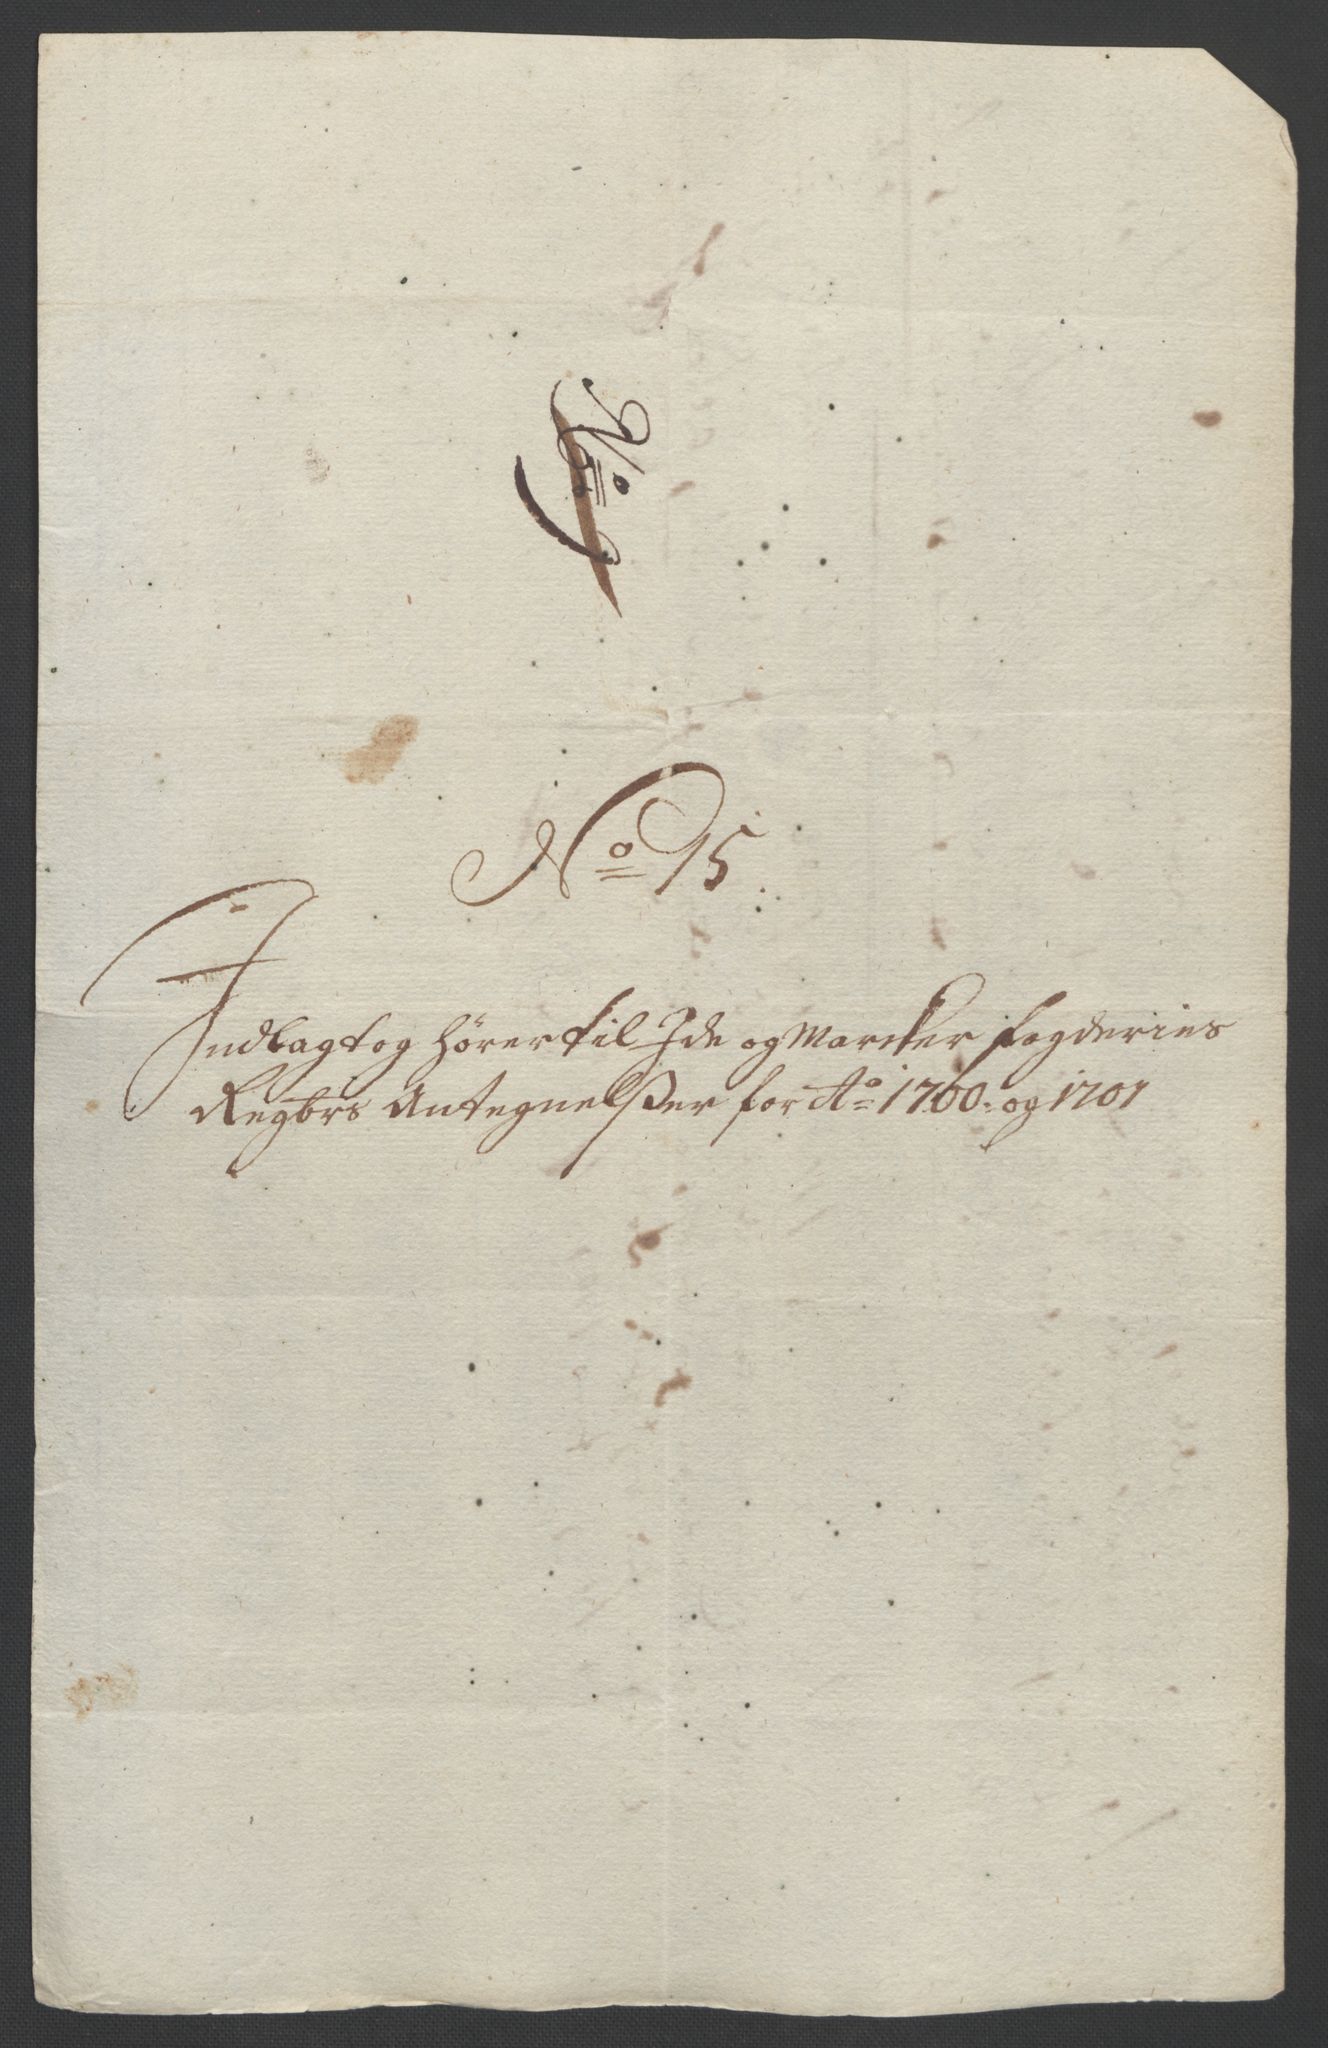 No
No 15
Indlagt og hører til Ide og Marcker fogderies
Regbrs Antegnelsser for Ao 1700. og 1701